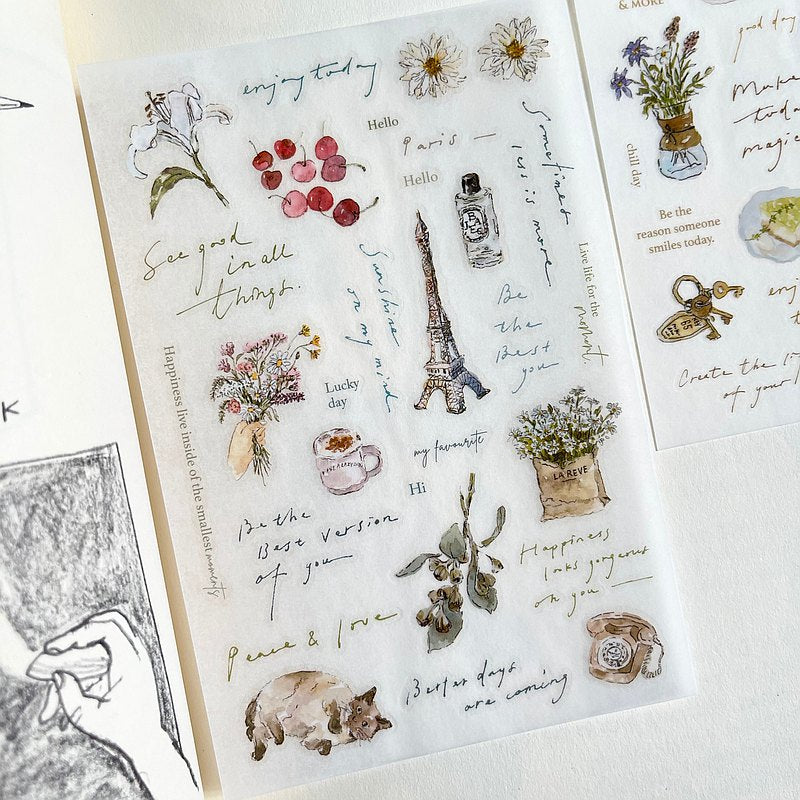 enjoy today
Hello
Paris —
Hello
Sometimes
less is more
See good
in all
things.
Sunshine
on my mind
Be
the
Best
you
Live life for the
moment.
Happiness live inside of the smallest moments
Lucky
day
my favourite
Hi
LA REVE
Be the
Best version
of you
Happiness
looks gorgeous
on you —
Peace & love
Better days
are coming
& MORE
good day
Make
today
magic
chill day
Be the
reason someone
smiles today.
enj
Create the
of your
K